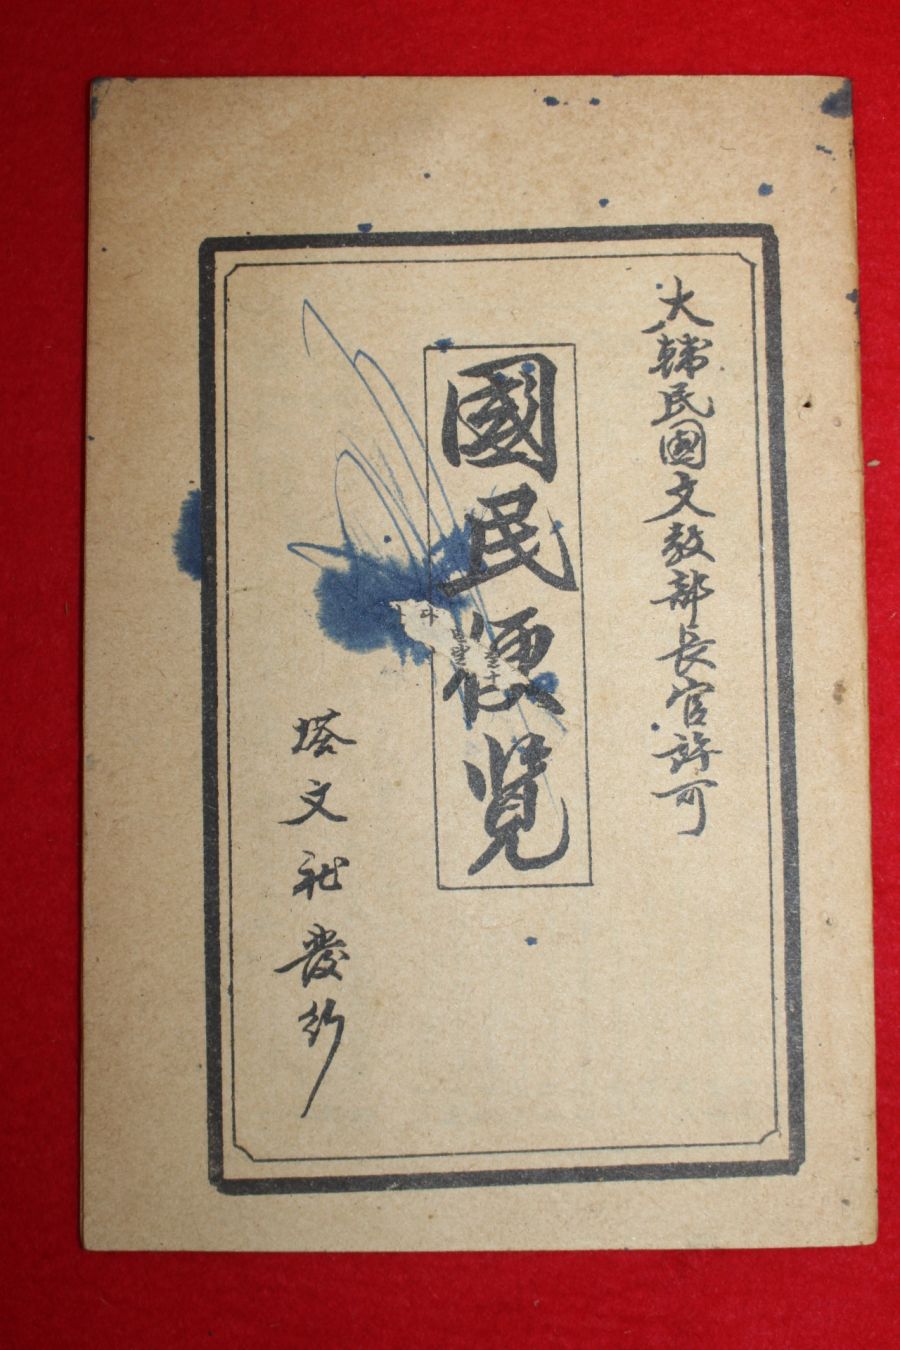 大韓民國文敎部長官許可
國民便覽
塔文社發行